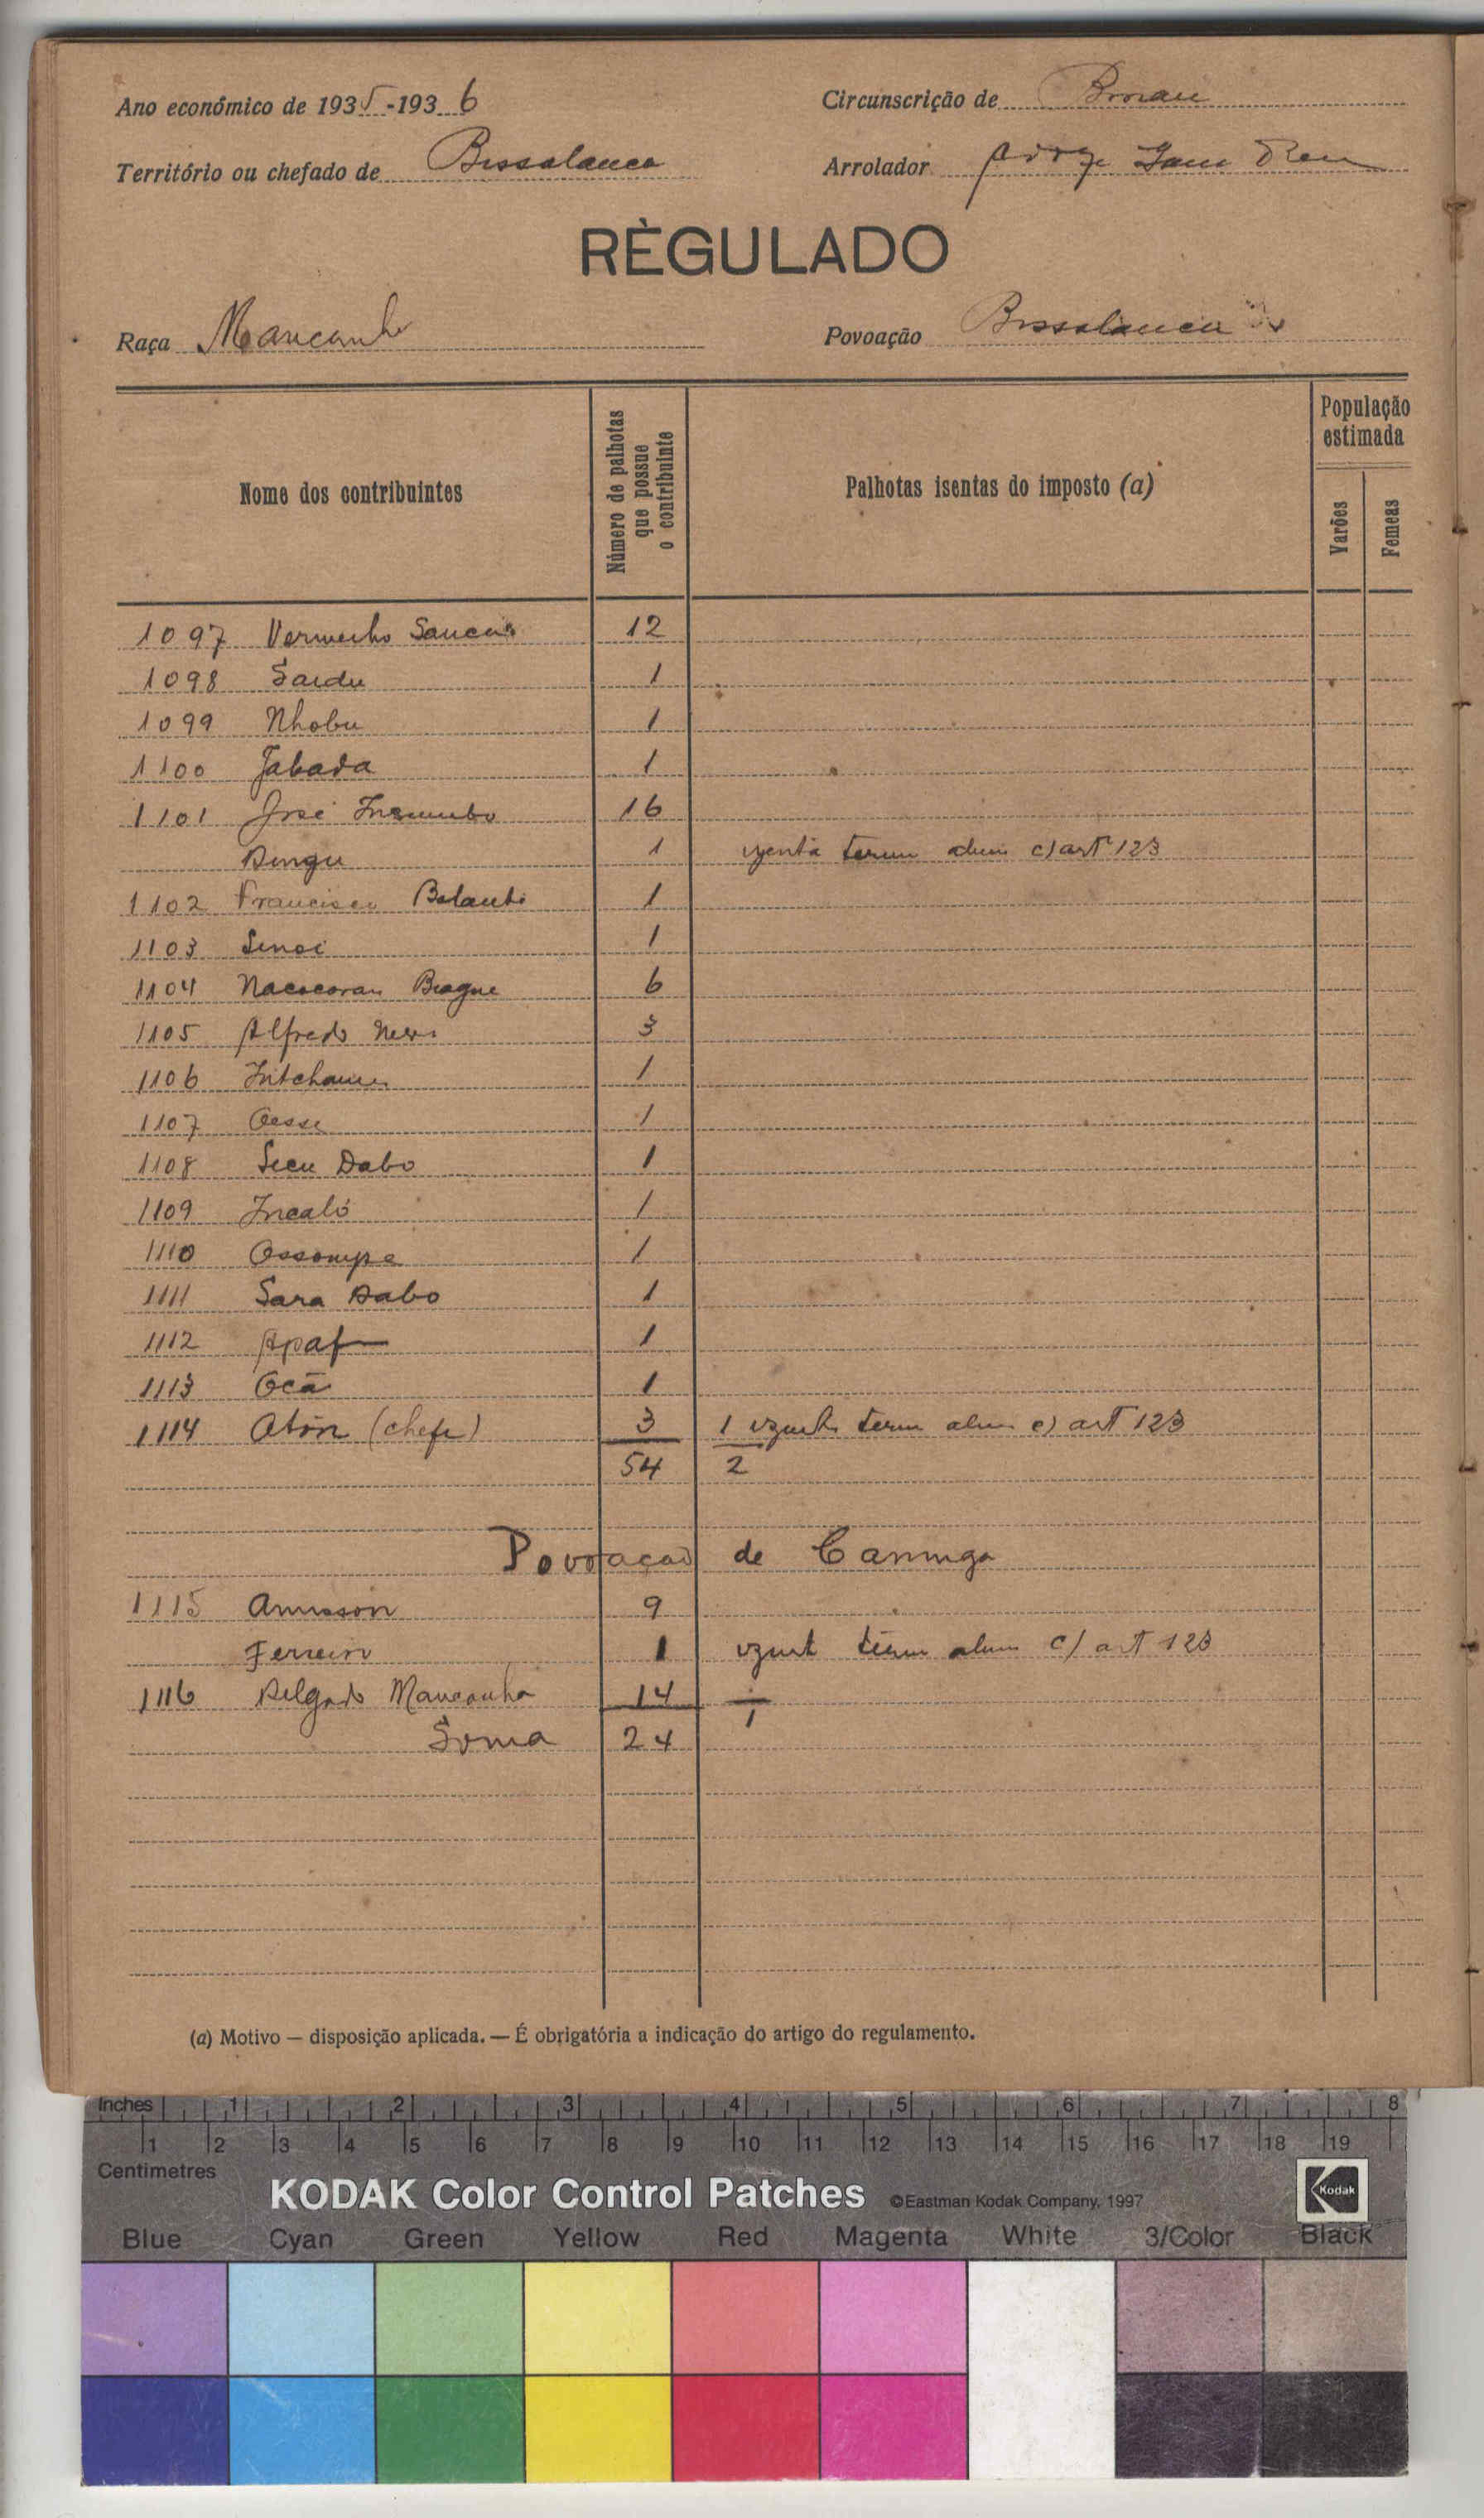 Ano económico de 1935-1936
Circunscrição de Bissau
Território ou chefado de Bissalanca
Arrolador
RÈGULADO
Raça Mancanha
Povoação Bissalanca
Nome dos contribuintes
Número de palhotas que possue o contribuinte
Palhotas isentas do imposto (a)
População estimada
Varões
Femeas
1097 Vermelho 12
1098 Saidu 1
1099 Nhobu 1
1100 Jabada 1
1101 José 16
Dingu 1 c) artº 123
1102 Francisco Balanta 1
1103 1
1104 Biague 6
1105 Alfredo 3
1106 1
1107 1
1108 Secu Dabo 1
1109 Incaló 1
1110 Ossompe 1
1111 Sara Dabo 1
1112 Apaf 1
1113 Ocã 1
1114 Aton (chefe) 3 1 c) art 123
54 2
Povoação de
1115 9
Ferreiro 1 c) art 123
1116 Delgado Mancanha 14 1
Soma 24
(a) Motivo — disposição aplicada. — É obrigatória a indicação do artigo do regulamento.
Inches 1 2 3 4 5 6 7 8
1 2 3 4 5 6 7 8 9 10 11 12 13 14 15 16 17 18 19
Centimetres
KODAK Color Control Patches ©Eastman Kodak Company, 1997
Kodak
Blue Cyan Green Yellow Red Magenta White 3/Color Black